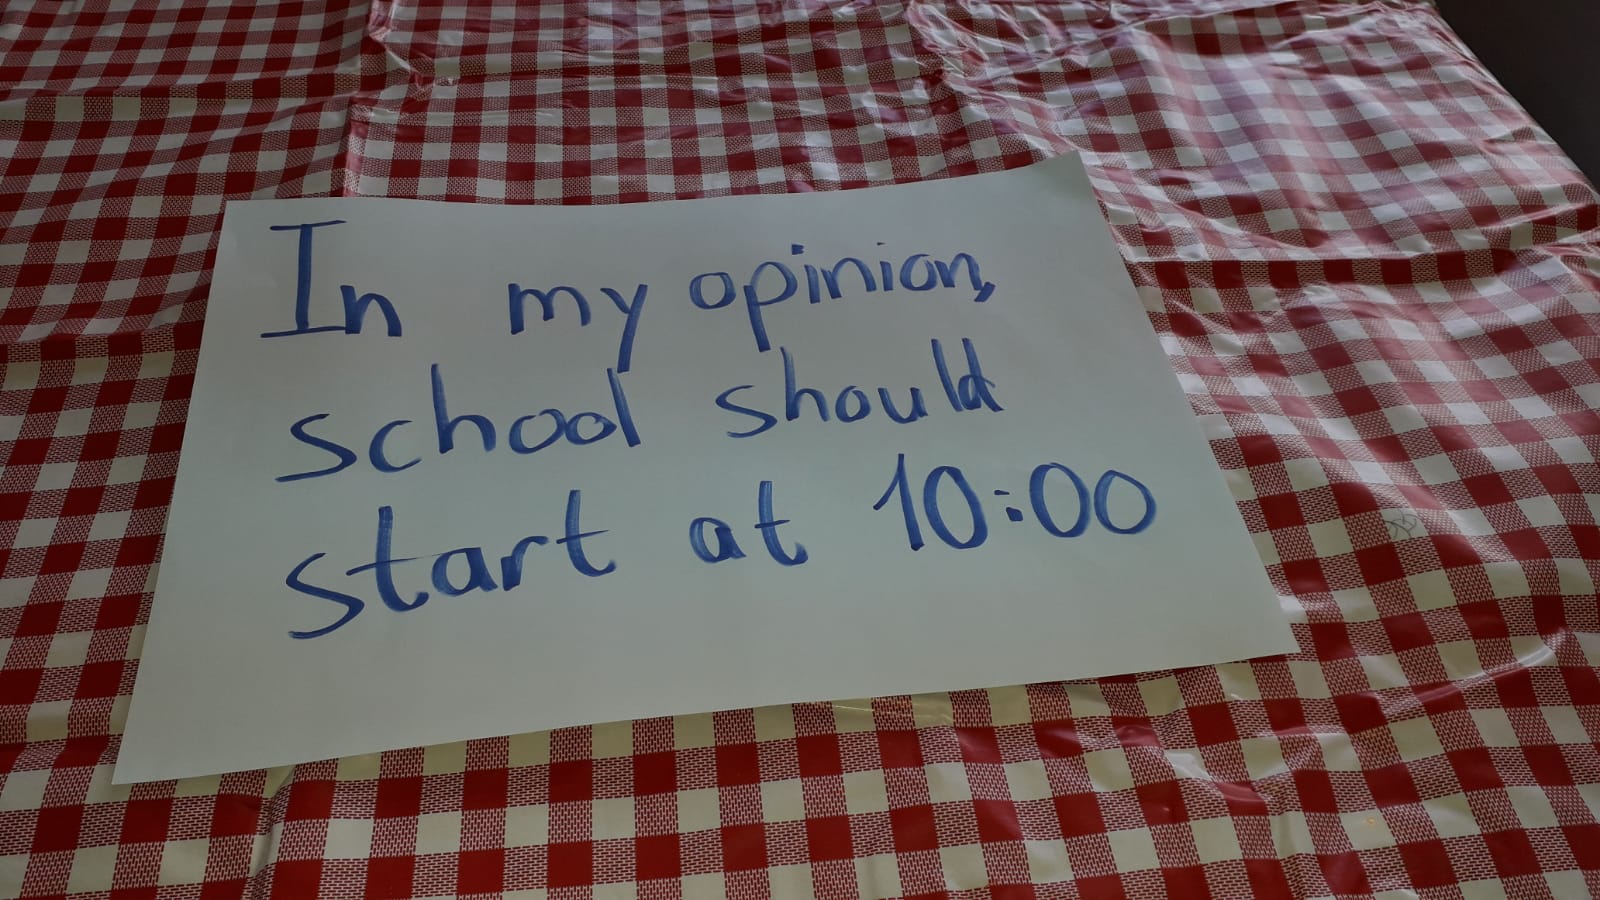 In my opinion,
school should
start at 10:00